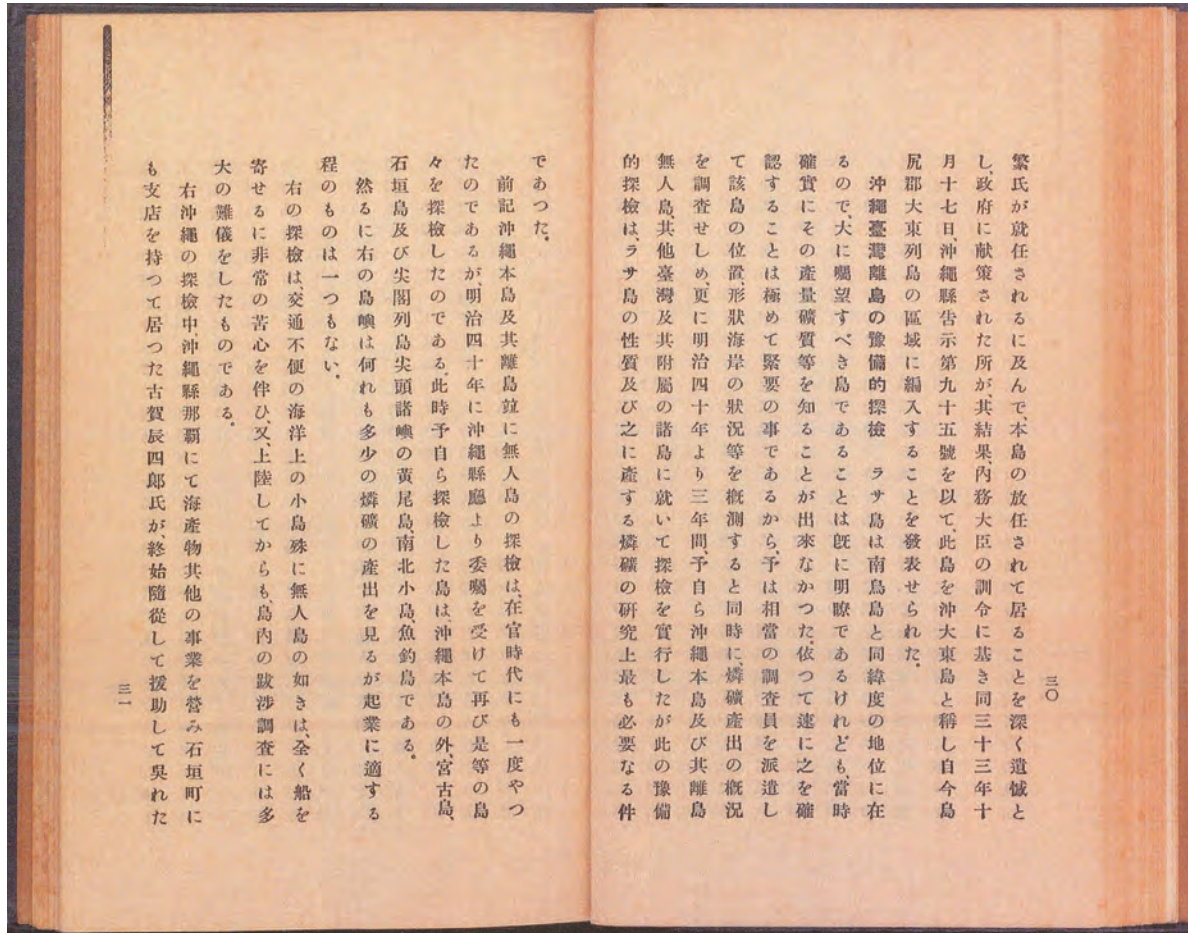 三〇
繁氏が就任されるに及んで、本島の放任されて居ることを深く遺憾と
し、政府に献策された所が、其結果、內務大臣の訓令に基き同三十三年十
月十七日、沖繩縣告示第九十五號を以て、此島を沖大東島と稱し自今島
尻郡大東列島の區域に編入することを發表せられた。
沖繩臺灣離島の豫備的探檢　ラサ島は南鳥島と同緯度の地位に在
るので、大に囑望すべき島であることは旣に明瞭であるけれども、當時
確實にその產量礦質等を知ることが出來なかつた。依つて速に之を確
認することは極めて緊要の事であるから、予は相當の調査員を派遣し
て該島の位置、形狀海岸の狀況等を槪測すると同時に、燐礦產出の槪況
を調査せしめ、更に明治四十年より三年間、予自ら沖繩本島及び其離島
無人島、其他臺灣及其附屬の諸島に就いて探檢を實行したが此の豫備
的探檢は、ラサ島の性質及び之に產する燐礦の硏究上最も必要なる件
であつた。
前記沖繩本島及其離島竝に無人島の探檢は、在官時代にも一度やつ
たのであるが、明治四十年に沖繩縣廳より委囑を受けて再び是等の島
々を探檢したのである。此時予自ら探檢した島は、沖繩本島の外、宮古島、
石垣島及び尖閣列島尖頭諸嶼の黃尾島、南北小島、魚釣島である。
然るに右の島嶼は何れも多少の燐礦の產出を見るが起業に適する
程のものは一つもない。
右の探檢は、交通不便の海洋上の小島殊に無人島の如きは、全く船を
寄せるに非常の苦心を伴ひ、又、上陸してからも、島內の跋涉調査には多
大の難儀をしたものである。
右沖繩の探檢中、沖繩縣那覇にて海產物其他の事業を營み石垣町に
も支店を持つて居つた古賀辰四郎氏が、終始隨從して援助して吳れた
三一